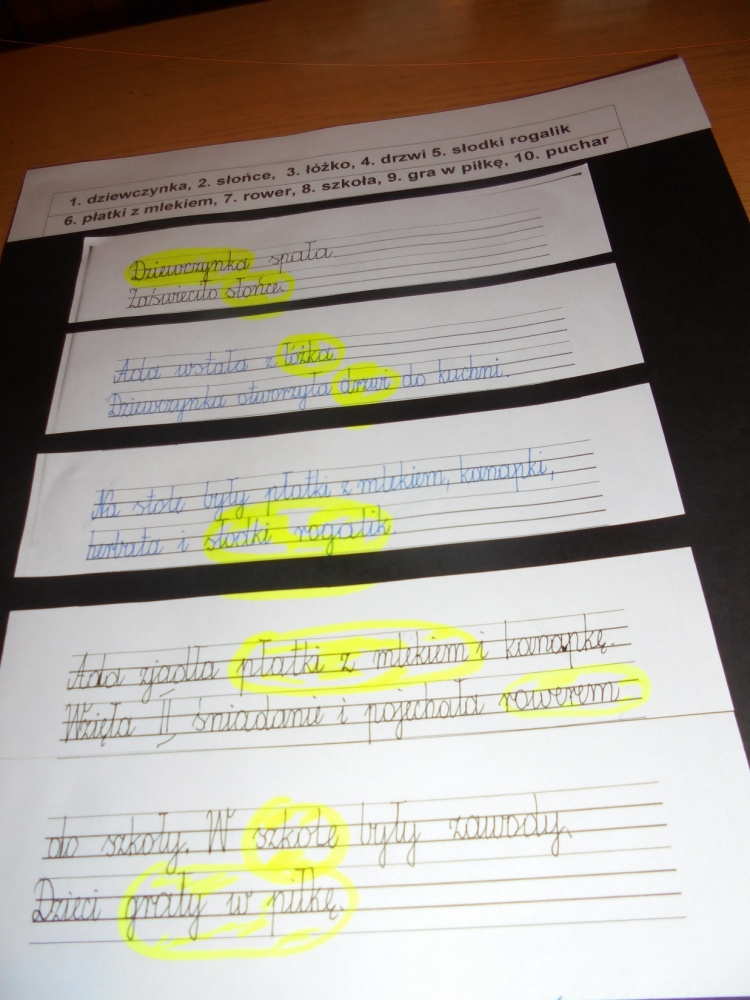 1. dziewczynka, 2. słońce, 3. łóżko, 4. drzwi 5. słodki rogalik
6. płatki z mlekiem, 7. rower, 8. szkoła, 9. gra w piłkę, 10. puchar
Dziewczynka spała.
Zaświeciło słońce.
Ada wstała z łóżka.
Dziewczynka otworzyła drzwi do kuchni.
Na stole były płatki z mlekiem, kanapki,
herbata i słodki rogalik
Ada zjadła płatki z mlekiem i kanapkę.
Wzięła II śniadanie i pojechała rowerem
do szkoły. W szkole były zawody.
Dzieci grały w piłkę.